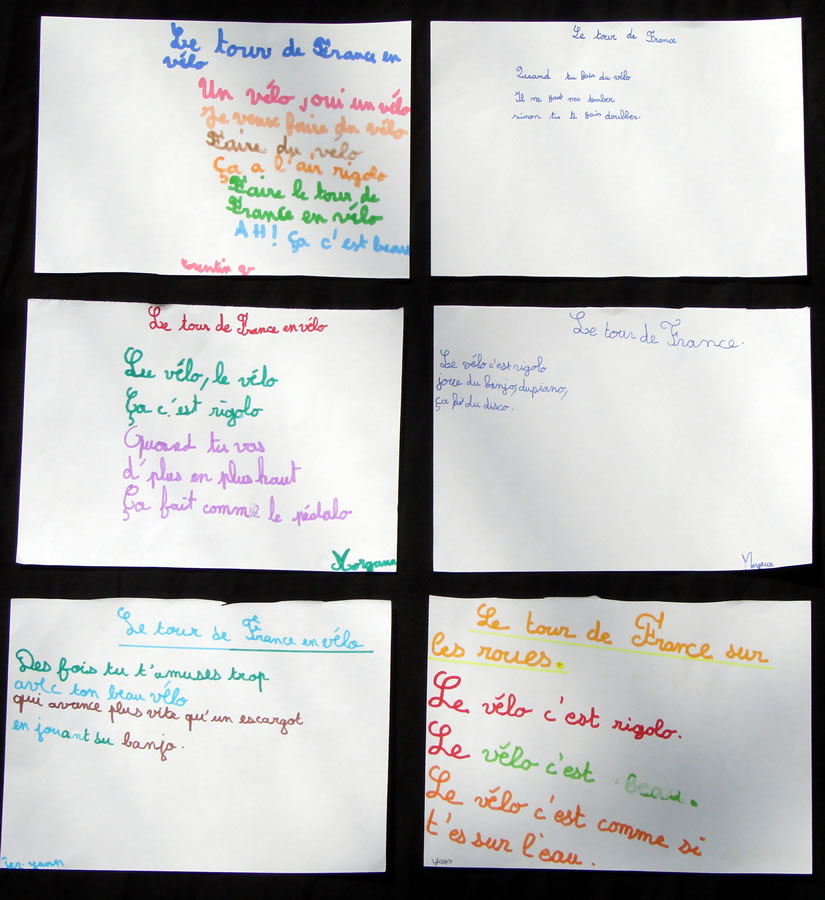 Le tour de France en
vélo
Un vélo, oui un vélo
Je veux faire du vélo
Faire du vélo
Ça a l'air rigolo
Faire le tour de
France en vélo
AH! Ça c'est beau
Corentin
Le tour de France
Quand tu fais du vélo
Il ne faut pas tomber
sinon tu te fais doubler.
Le tour de France en vélo
Le vélo, le vélo
Ça c'est rigolo
Quand tu vas
d'plus en plus haut
Ça fait comme le pédalo
Morgane
Le tour de France.
Le vélo c'est rigolo
joue du banjo, du piano,
ça fait du disco.
Le tour de France en vélo
Des fois tu t'amuses trop
avec ton beau vélo
qui avance plus vite qu'un escargot
en jouant du banjo.
Le tour de France sur
les roues.
Le vélo c'est rigolo.
Le vélo c'est beau.
Le vélo c'est comme si
t'es sur l'eau.